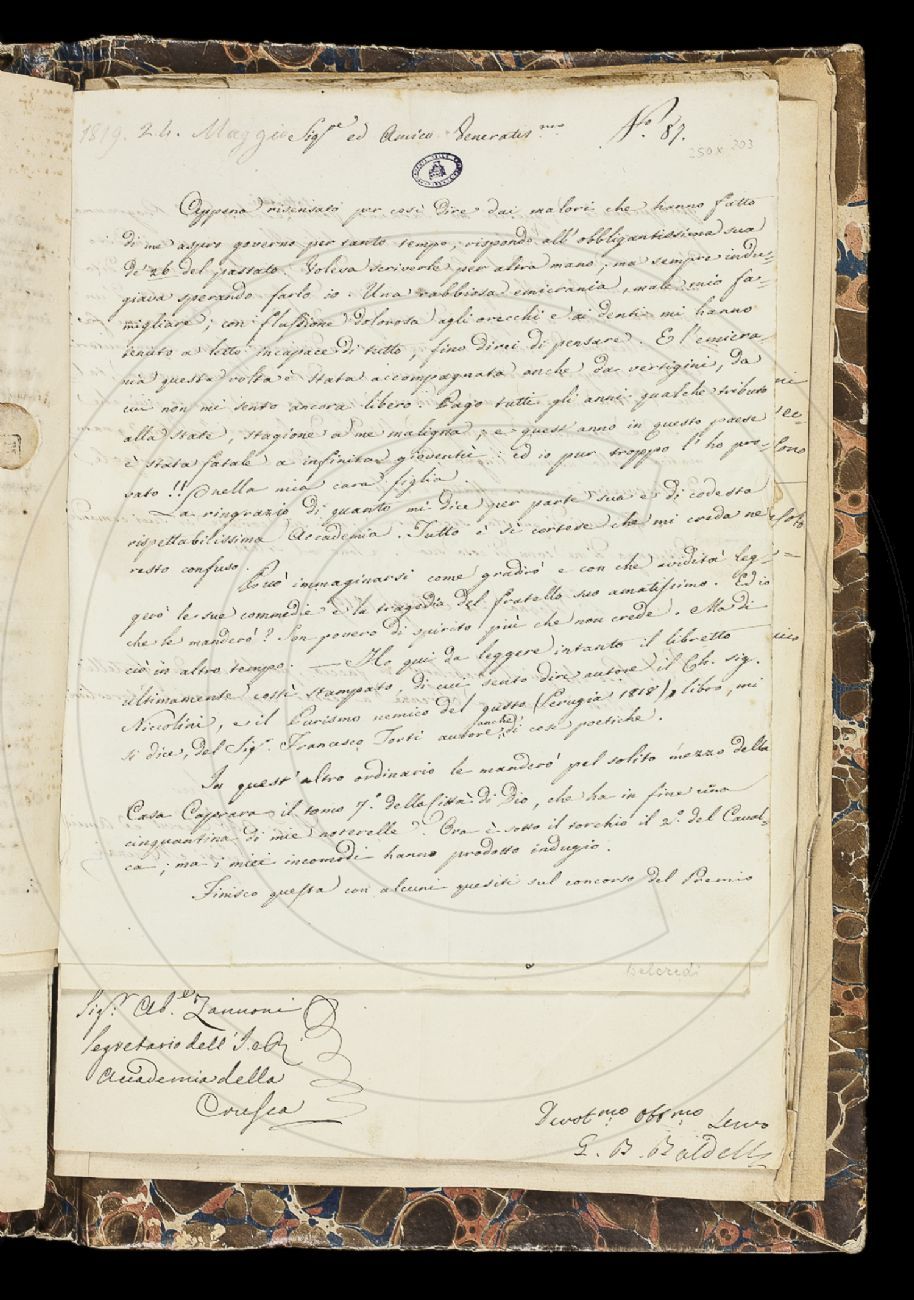 1819. 24. Maggio Sig.re ed Amico Veneratis.mo N.o 87.
250x 203
Appena risensato per così dire dai malori che hanno fatto
di me aspro governo per tanto tempo, rispondo all'obbligantissima sua
de' 26 del passato. Voleva scriverle per altra mano, ma sempre indu-
giava sperando farlo io. Una rabbiosa emicrania, male mio fa-
migliare, con flussione dolorosa agli orecchi e ai denti mi hanno
tenuto a letto incapace di tutto, fino direi di pensare. E l'emicra-
nia questa volta è stata accompagnata anche da vertigini, da
cui non mi sento ancora libero. Pago tutti gli anni qualche tributo
alla state, stagione a me maligna, e quest'anno in questo paese
è stata fatale a infinita gioventù: ed io pur troppo l'ho pro-
vato!! nella mia cara figlia.
La ringrazio di quanto mi dice per parte sua e di codesta
rispettabilissima Accademia. Tutto è sì cortese che mi creda ne
resto confuso.
Può immaginarsi come gradirò e con che avidità leg-
gerò le sue commedie e la tragedia del fratello suo amatissimo. Ed io
che le manderò? Son povero di spirito più che non crede. Ma di
ciò in altro tempo. — Ho qui da leggere intanto il libretto
ultimamente costì stampato, di cui sento dire autore il Ch. sig.
Niccolini, e il Purismo nemico del gusto (Perugia 1818), libro, mi
si dice, del Sig.r Francesco Torti autore anche di cose poetiche.
In quest'altro ordinario le manderò pel solito mezzo della
Casa Caprara il tomo 7.o della Città di Dio, che ha in fine una
cinquantina di mie noterelle. Ora è sotto il torchio il 2.o del Caval-
ca; ma i miei incomodi hanno prodotto indugio.
Finisco questa con alcuni quesiti sul concorso del Premio
Belcredi
Sig.r Ab.e Zannoni
Segretario dell'I. e R.
Accademia della
Crusca
Devot.mo Obb.mo Servo
G. B. Baldelli